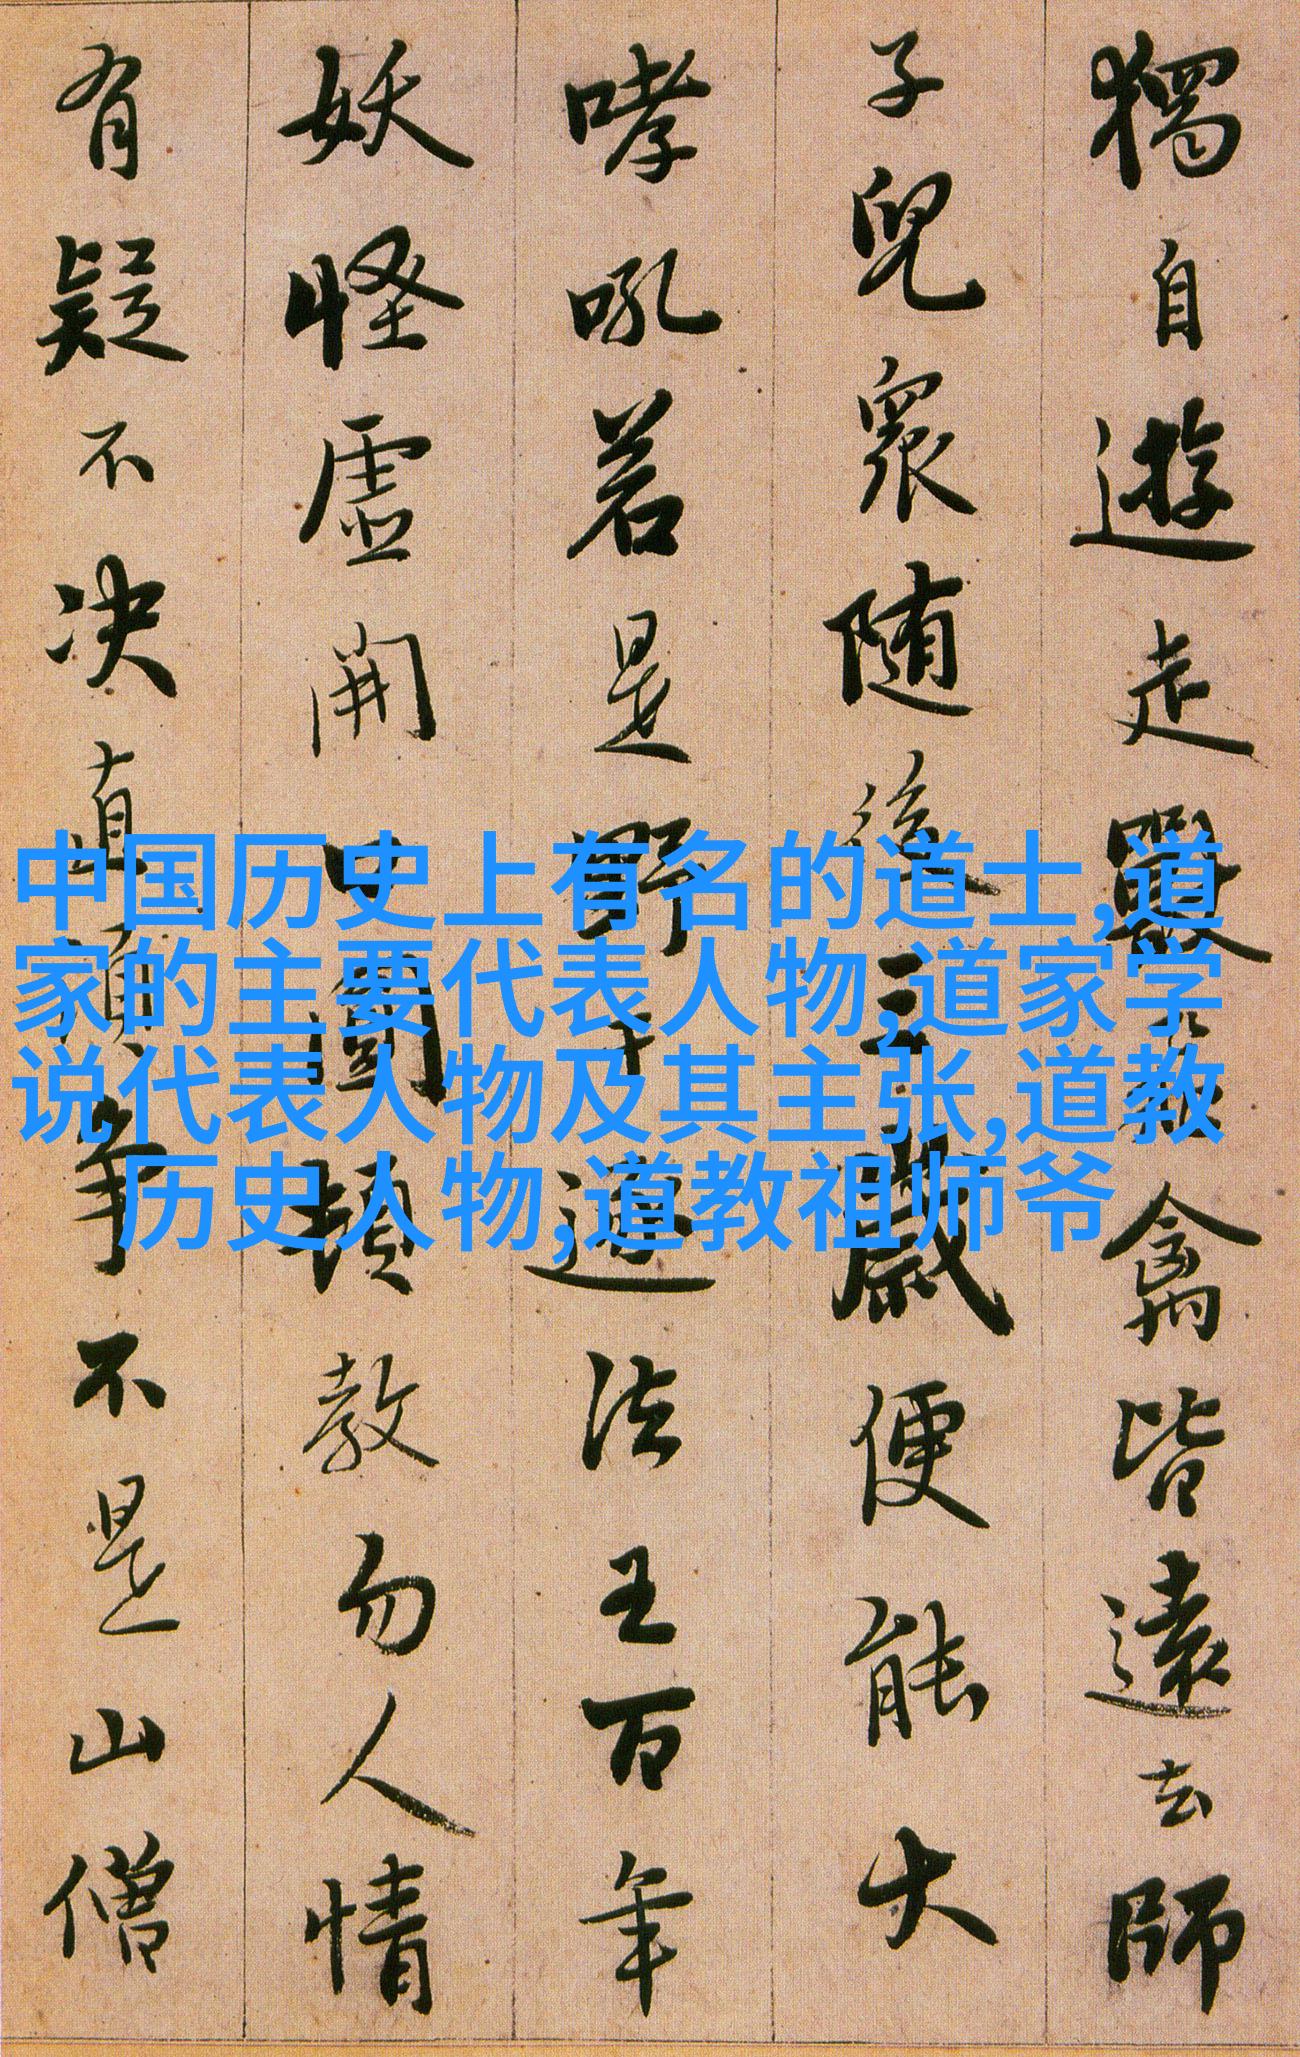 獨自遊走獸禽皆遠去師
子兒衆随後三歲便能大
哮吼若是野干逐法王百年
妖怪虚開口圓頓教勿人情
有疑不决直須爭不是山僧
中国历史上有名的道士,道
家的主要代表人物,道家学
说代表人物及其主张,道教
历史人物,道教祖师爷